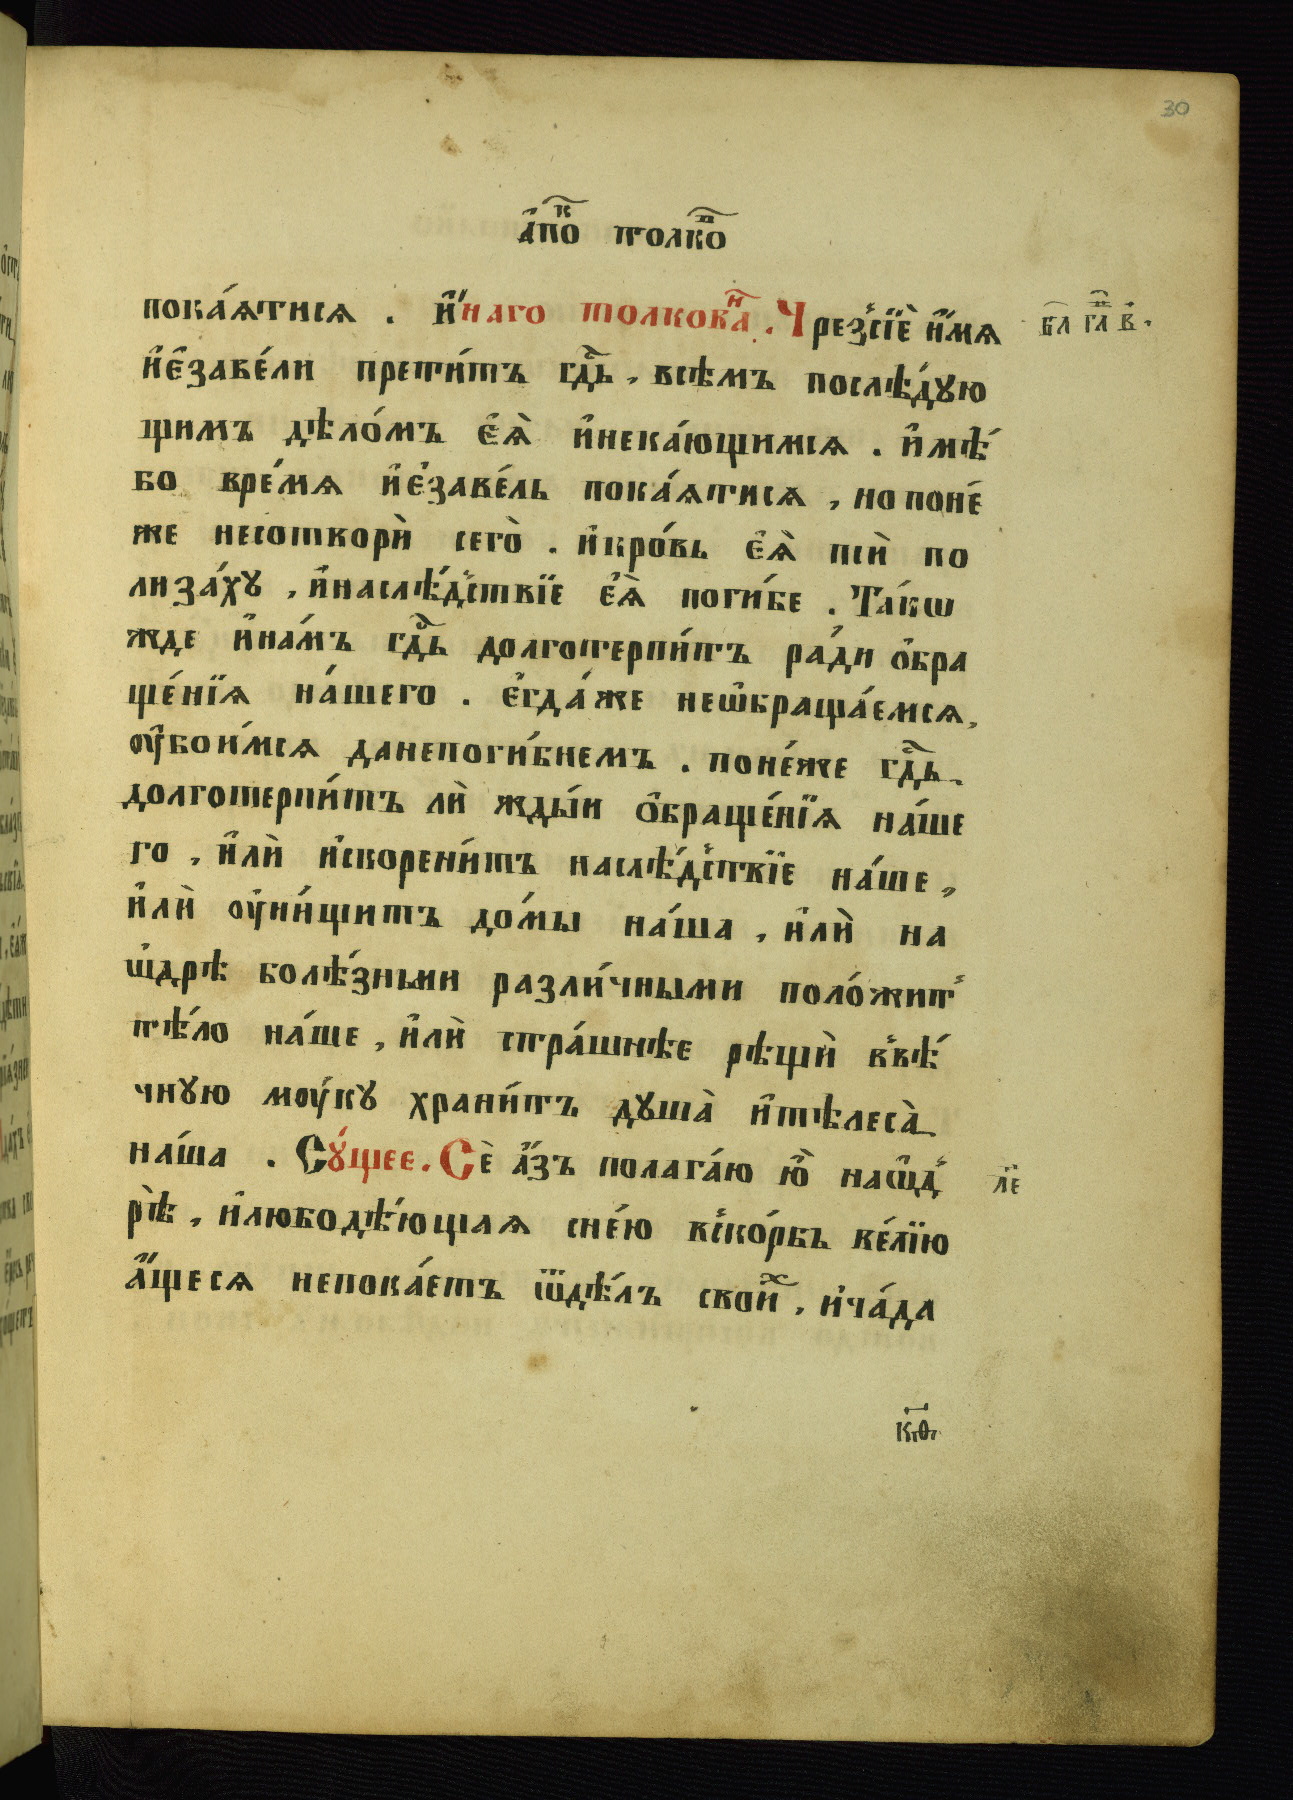 30
а҆по҃к толко҃в
пока́ятися . и҆́наго толкова҃н . Чрезсїѐ и҆́мя
бл гл҃ в҃ .
и҆є҆заве́ли прети́тъ гд҃ь , всѣмъ послѣ́дꙋю
щимъ дѣло́мъ є҆ѧ̀ и҆нека́ющимсѧ . и҆мѣ́
бо вре́мѧ и҆є҆заве́ль пока́ѧтисѧ , но поне́
же несотворѝ сегѡ̀ . и҆кро́вь є҆ѧ̀ псѝ по
лиза́хꙋ , и҆наслѣ́дствїе є҆ѧ̀ поги́бе . Та́кѡ
жде и҆на́мъ гд҃ь долготерпи́тъ ра́ди ѻ҆бра
ще́нїѧ на́шего . є҆гда́же неѡ҆браща́емсѧ ,
ᲂу҆бои́мсѧ данепоги́бнемъ . поне́же гд҃ь
долготерпи́тъ лѝ жды́и ѻ҆браще́нїѧ на́ше
го , и҆лѝ и҆скорени́тъ наслѣ́дствїе на́ше ,
и҆лѝ ᲂу҆ни́щитъ до́мы на́ша , и҆лѝ на
ѿдрѣ болѣ́зньми разли́чными поло́жит
тѣ́ло на́ше , и҆лѝ стра́шнѣе рѣщѝ ввѣ́
чнꙋю мᲂу́кꙋ храни́тъ дꙋша̀ и҆тѣлеса̀
на́ша . Сꙋ́щее . Сѐ а҆́зъ полага́ю ю҆̀ наѿд
л҃е
рѣ̀ , и҆любодѣ́ющїѧ сне́ю вско́рбь ве́лїю
а҆́щесѧ непока́етъ ѿдѣ́лъ свои҃х , и҆ча́да
к҃ѳ